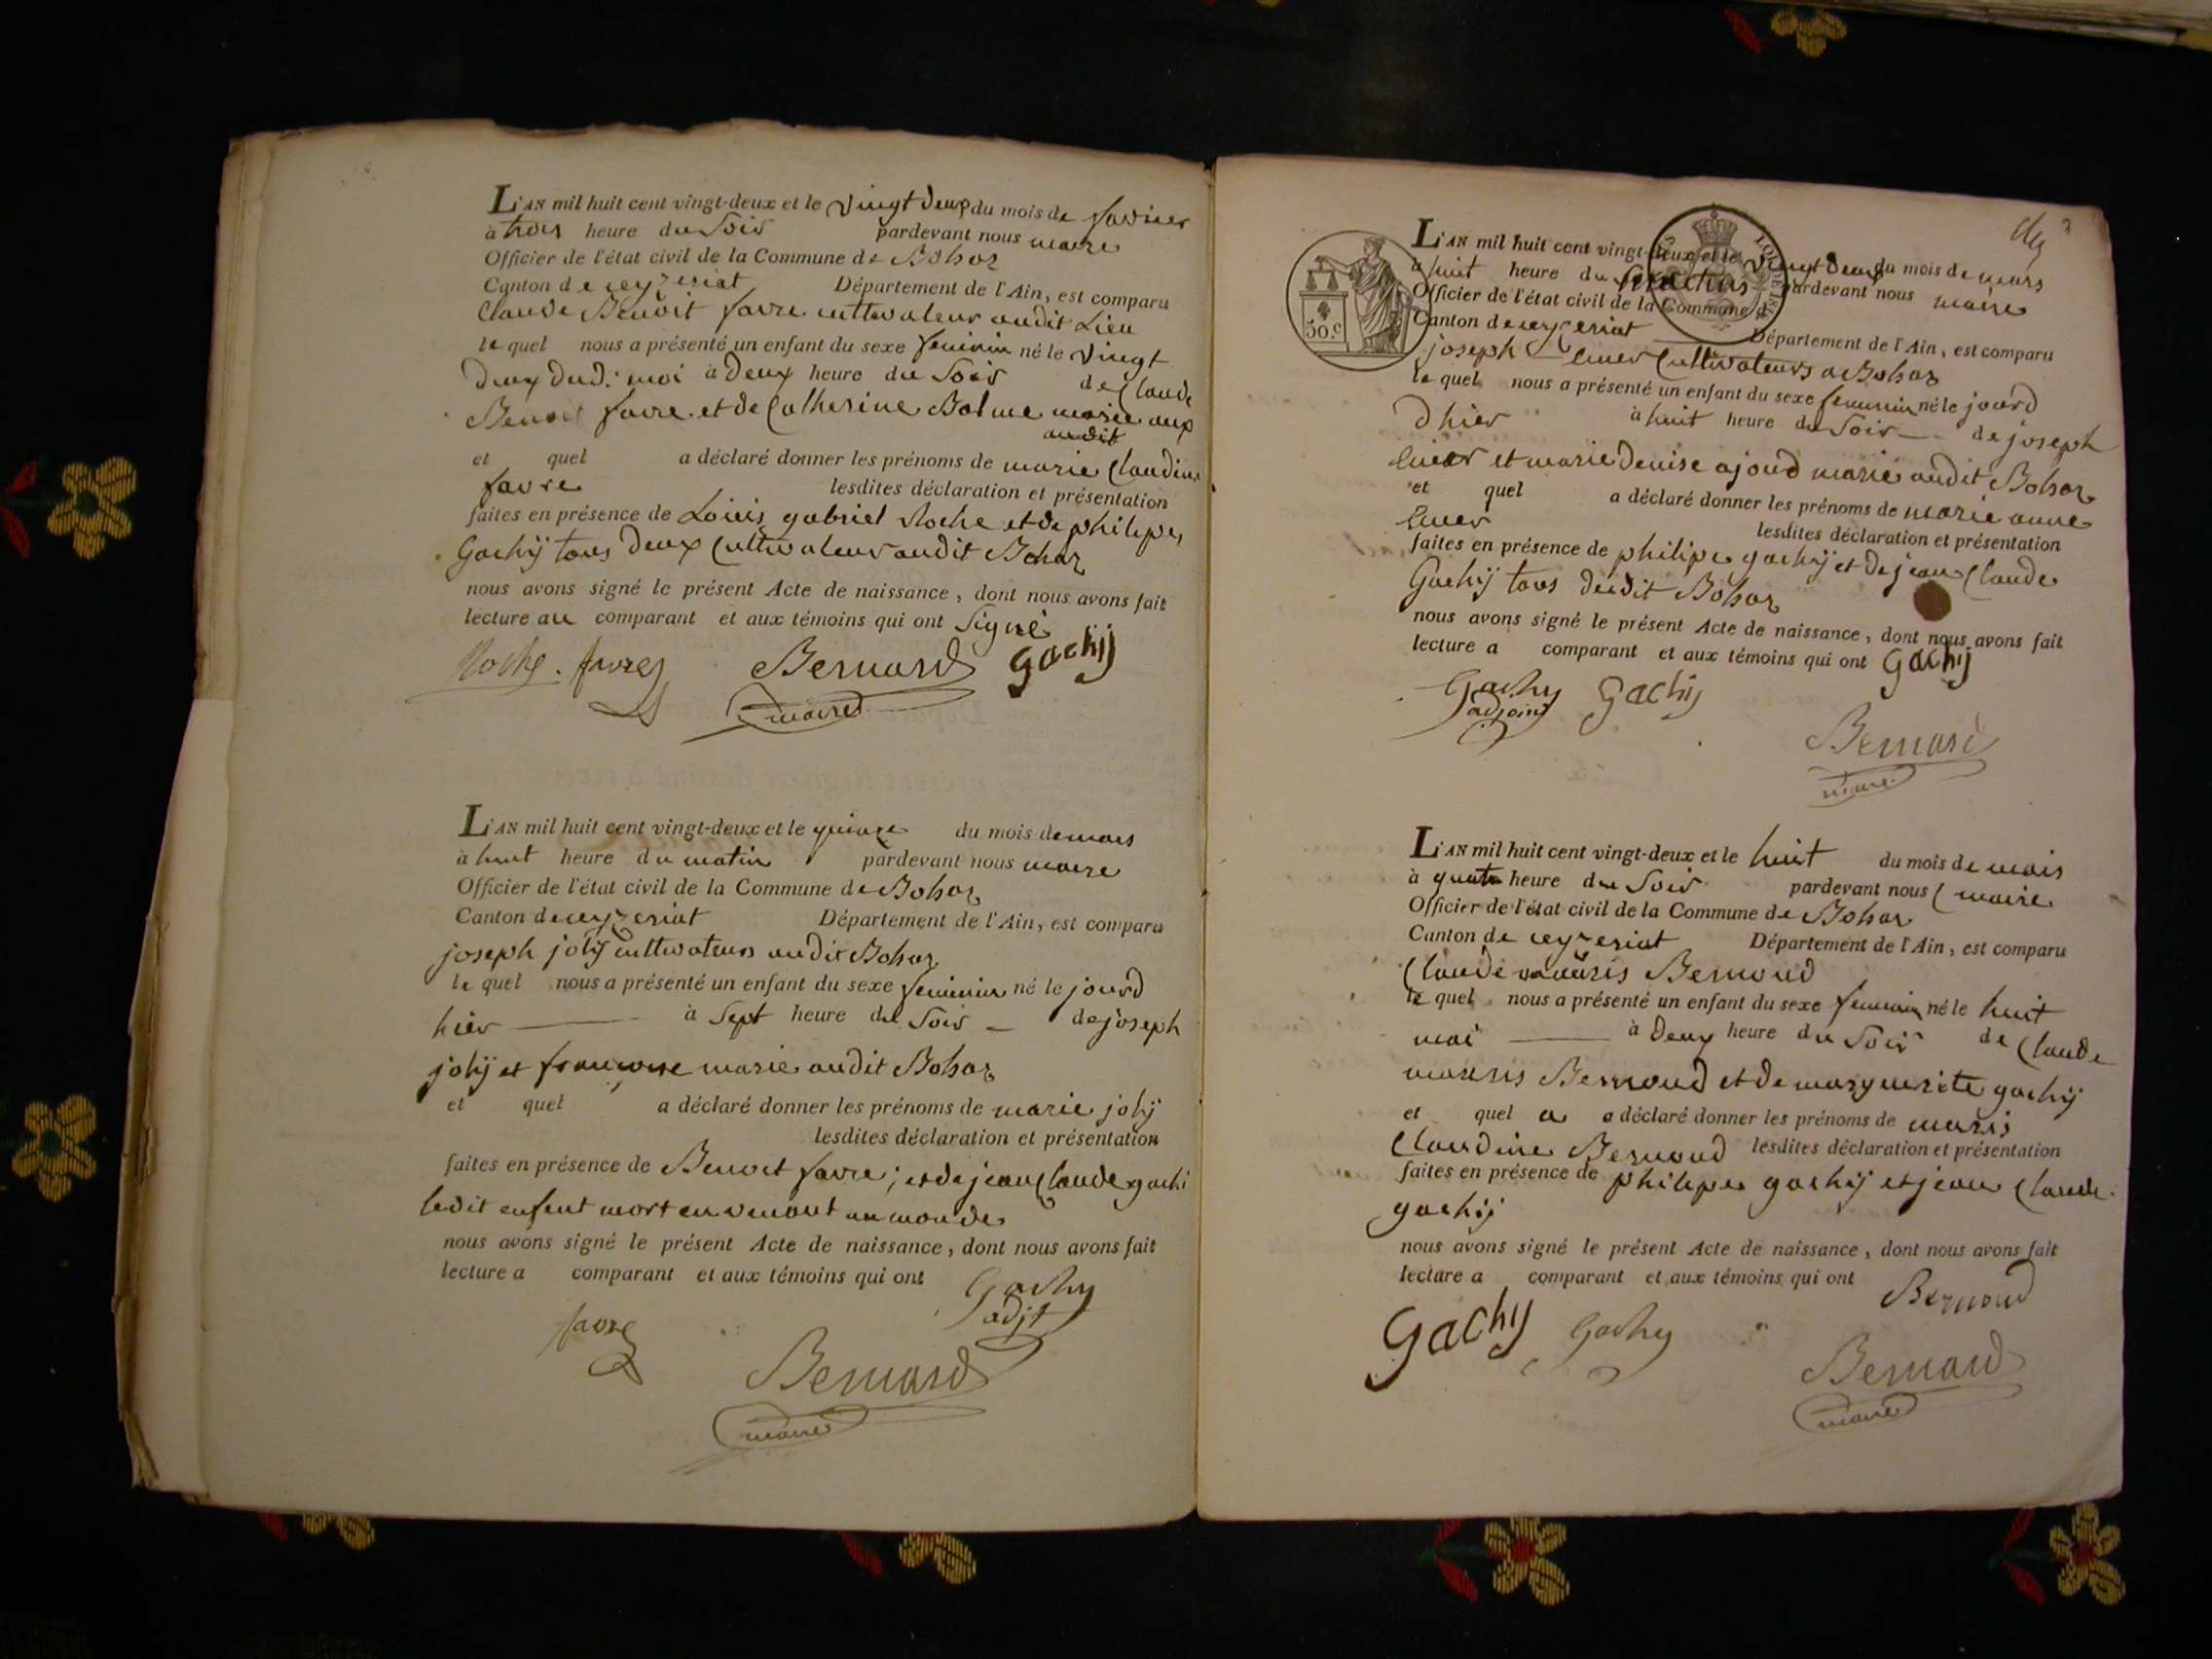 L'AN mil huit cent vingt-deux et le vingt deux du mois de favrier
à trois heure du Soir pardevant nous maire
Officier de l'état civil de la Commune de Bohas
Canton de ceyzeriat Département de l'Ain, est comparu
Claude Benoit favre cultivateur audit Lieu
lequel nous a présenté un enfant du sexe feminin né le vingt
deux dud. moi à deux heure du Soir de Claude
Benoit favre et de Catherine Balme marie aux
audit
et quel a déclaré donner les prénoms de marie Claudine
favre lesdites déclaration et présentation
faites en présence de Louis gabriel Roche et de philipes
Gachij tous deux Cultivateur audit Bohas
nous avons signé le présent Acte de naissance, dont nous avons fait
lecture au comparant et aux témoins qui ont Signé
Roche. favre Bernard gachij
maire
L'AN mil huit cent vingt-deux et le quinze du mois de mars
à huit heure du matin pardevant nous maire
Officier de l'état civil de la Commune de Bohas
Canton de ceyzeriat Département de l'Ain, est comparu
joseph jolij cultivateur audit Bohas
le quel nous a présenté un enfant du sexe feminin né le jourd
hier à Sept heure du Soir de joseph
jolij et francoise marie audit Bohas
et quel a déclaré donner les prénoms de marie jolij
lesdites déclaration et présentation
faites en présence de Benoit favre; et de jean Claude gachi
ledit enfent mort en venant au monde
nous avons signé le présent Acte de naissance, dont nous avons fait
lecture a comparant et aux témoins qui ont Gachy
adjt
favre
Bernard
maire
L'AN mil huit cent vingt-deux et le vingt deux du mois de mars
à huit heure du matin pardevant nous maire
Officier de l'état civil de la Commune d
50.c
Canton de ceyzeriat Département de l'Ain, est comparu
joseph Cultivateurs a Bohas
le quel nous a présenté un enfant du sexe feminin né le jourd
dhier à huit heure du Soir de joseph
et marie denise ajoud marié audit Bohas
et quel a déclaré donner les prénoms de marie anne
lesdites déclaration et présentation
faites en présence de philipe gachij et de jean Claude
Gachij tous dudit Bohas
nous avons signé le présent Acte de naissance, dont nous avons fait
lecture a comparant et aux témoins qui ont gachij
Gachy gachij
adjoint
Bernard
maire
L'AN mil huit cent vingt-deux et le huit du mois de mais
à quatre heure du Soir pardevant nous maire
Officier de l'état civil de la Commune de Bohas
Canton de ceyzeriat Département de l'Ain, est comparu
Claude Bernoud
le quel nous a présenté un enfant du sexe feminin né le huit
mai à deux heure du Soir de Claude
Bernoud et de marguerite gachij
et quel a a déclaré donner les prénoms de marie
Claudine Bernoud lesdites déclaration et présentation
faites en présence de philipe gachij et jean Claude
gachij
nous avons signé le présent Acte de naissance, dont nous avons fait
lecture a comparant et aux témoins qui ont Bernoud
gachij Gachy
Bernard
maire